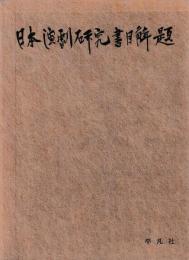 日本演劇研究書目解題
平凡社